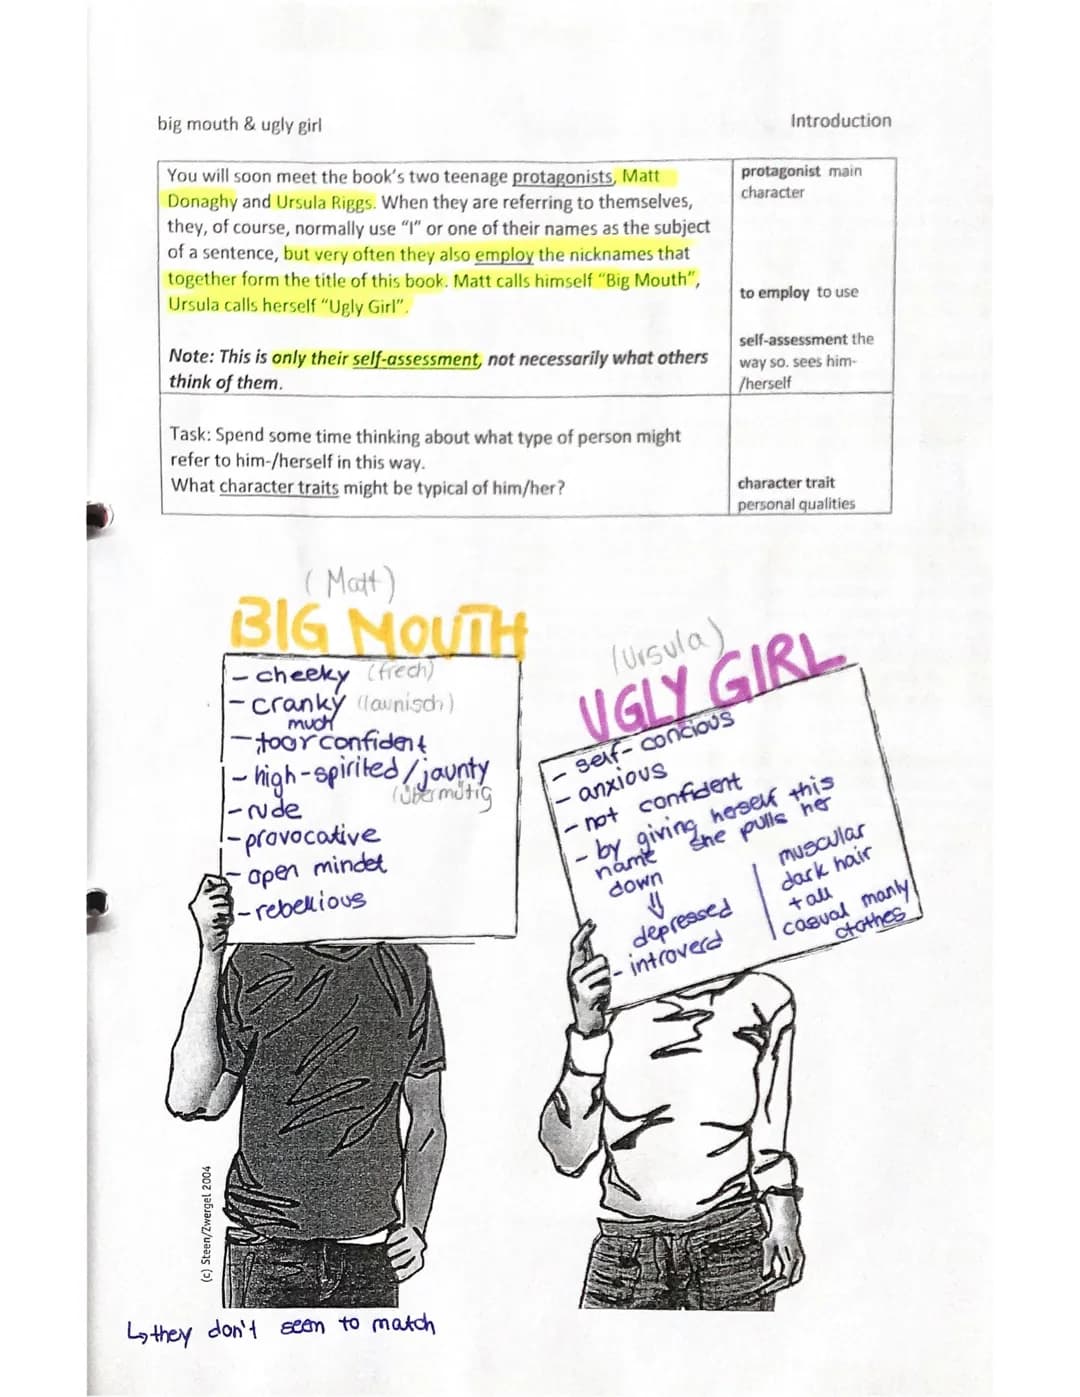 big mouth & ugly girl
Introduction
You will soon meet the book's two teenage protagonists, Matt
Donaghy and Ursula Riggs. When they are referring to themselves,
they, of course, normally use "I" or one of their names as the subject
of a sentence, but very often they also employ the nicknames that
together form the title of this book. Matt calls himself "Big Mouth",
Ursula calls herself "Ugly Girl".
Note: This is only their self-assessment, not necessarily what others
think of them.
protagonist main
character
to employ to use
self-assessment the
way so. sees him-
/herself
Task: Spend some time thinking about what type of person might
refer to him-/herself in this way.
What character traits might be typical of him/her?
character trait
personal qualities
(Matt)
BIG MOUTH
- cheeky (frech)
- cranky (launisch)
much
- toor confident
- high-spirited/jaunty
(übermütig
- rude
- provocative
- open mindet
- rebellious
(Ursula)
UGLY GIRL
- self-concious
- anxious
- not confident
- by giving herself this
name she pulls her
down
⇓
depressed
- introverd
muscular
dark hair
tall
casual manly
clothes
(c) Steen/Zwergel 2004
↳they don't seem to match